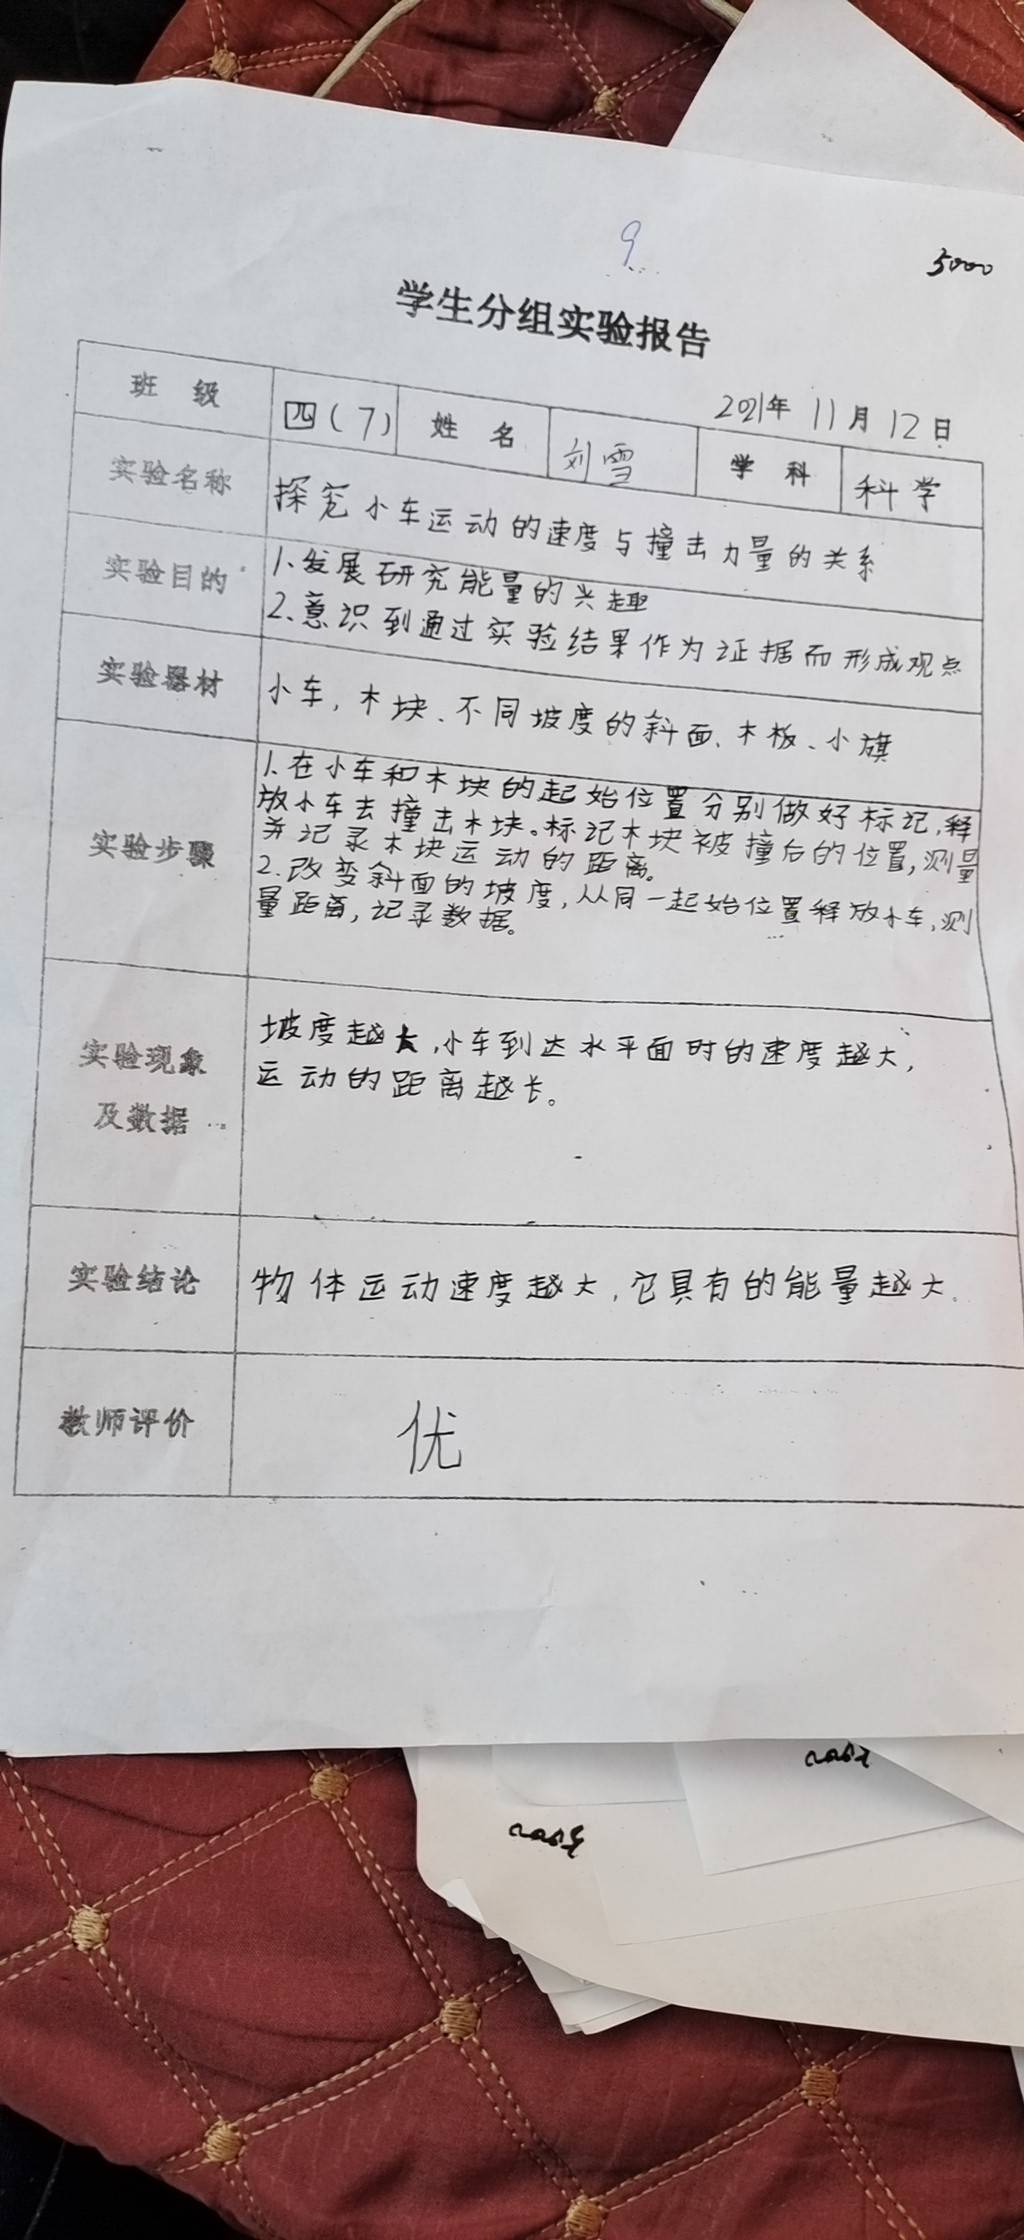 9
5000
学生分组实验报告
2021年11月12日
班 级 四(7) 姓 名 刘雪 学 科 科学
实验名称 探究小车运动的速度与撞击力量的关系
实验目的 1.发展研究能量的兴趣
2.意识到通过实验结果作为证据而形成观点
实验器材 小车,木块、不同坡度的斜面、木板、小旗
实验步骤 1.在小车和木块的起始位置分别做好标记,释
放小车去撞击木块。标记木块被撞后的位置,测量
并记录木块运动的距离。
2.改变斜面的坡度,从同一起始位置释放小车,测
量距离,记录数据。
实验现象
及数据
坡度越大,小车到达水平面时的速度越大,
运动的距离越长。
实验结论 物体运动速度越大,它具有的能量越大。
教师评价 优